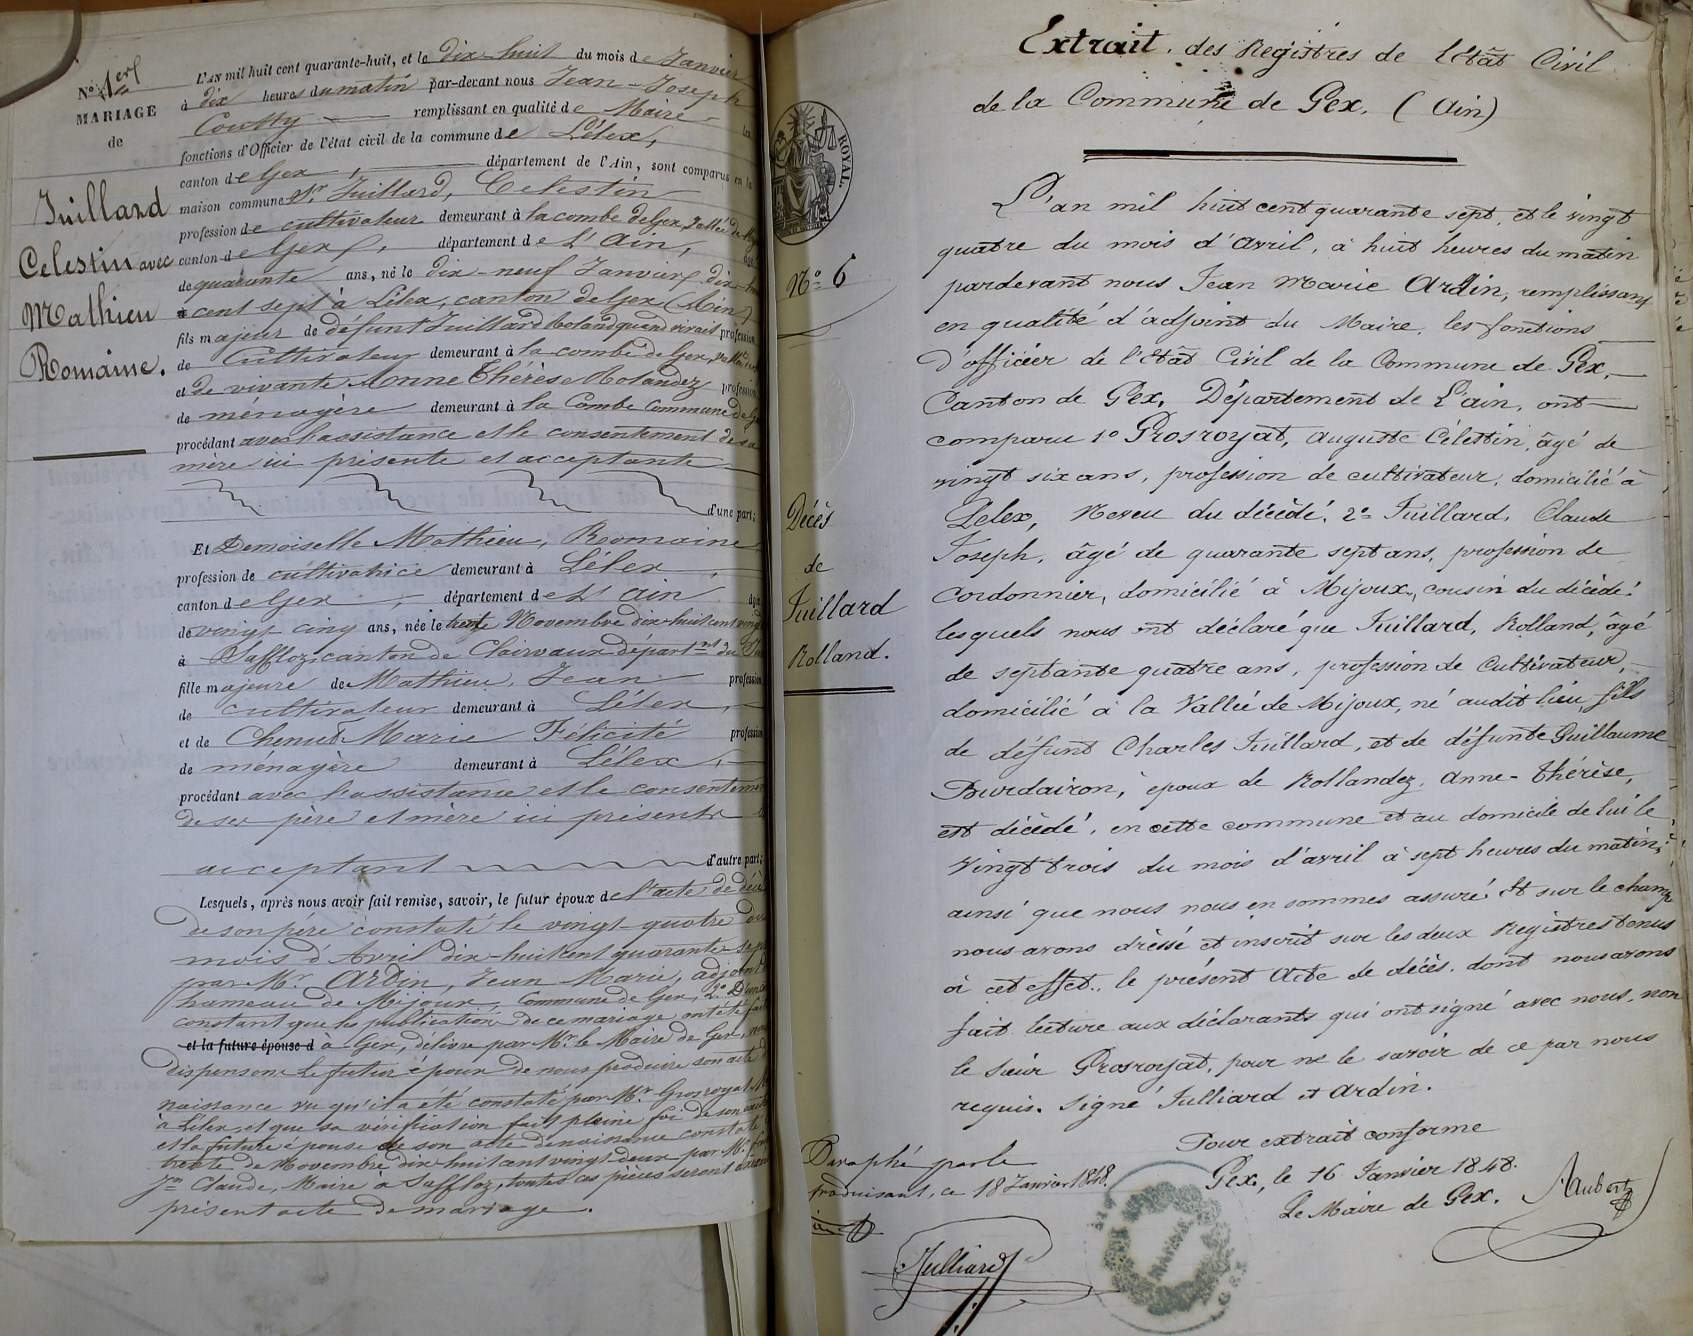 No. 1er
MARIAGE
de
Juillard
Celestin avec
Mathieu
Romaine.
L'AN mil huit cent quarante-huit, et le dix-huit du mois de Janvier
à dix heures du matin par-devant nous Jean-Joseph
Coutty remplissant en qualité de Maire les
fonctions d'Officier de l'état civil de la commune de Lélex,
canton de Gex, département de l'Ain, sont comparus en la
maison commune Sr. Juillard, Celestin
profession de cultivateur demeurant à la combe de Gex, Vallée de
canton de Gex, département de L'Ain,
de quarante ans, né le dix-neuf Janvier dix-huit
cent sept à Lélex, canton de Gex (Ain)
fils majeur de défunt Juillard Roland quand vivait profession
de Cultivateur demeurant à la combe de Gex,
et de vivante Anne Thérèse Rolandez profession
de ménagère demeurant à la Combe Commune de Gex
procédant avec l'assistance et le consentement de sa
mère ici présente et acceptante
d'une part;
Et Demoiselle Mathieu, Romaine
profession de cultivatrice demeurant à Lélex,
canton de Gex, département de L'Ain
de vingt-cinq ans, née le trente Novembre dix-huit cent vingt
à Saffloz, canton de Clairvaux départ.nt du
fille majeure de Mathieu, Jean profession
de cultivateur demeurant à Lélex,
et de Chenut Marie Félicité profession
de ménagère demeurant à Lélex,
procédant avec l'assistance et le consentement
de ses père et mère ici présents
acceptant d'autre part;
Lesquels, après nous avoir fait remise, savoir, le futur époux de l'acte de décès
de son père constaté le vingt-quatre du
mois d'Avril dix-huit cent quarante-sept
par Mr. Ardin, Jean Marie, adjoint
hameau de Mijoux, commune de Gex, 2º D'un
constant que les publications de ce mariage ont été fait
et la future épouse d à Gex, délivré par Mr. le Maire de Gex,
dispensons le futur époux de nous produire son acte de
naissance vu qu'il a été constaté par Mr. Grosroyat
à Lélex, et que sa vérification fait pleine foi de son
et la future épouse de son acte de naissance constaté
trente de Novembre dix-huit cent vingt-deux par Mr.
Jn. Claude, Maire à Saffloz, toutes ces pièces seront
présent acte de mariage.
Extrait des Registres de l'Etât Civil
de la Commune de Gex. (Ain)
ROYAL.
Nº 6
Décès
de
Juillard
Rolland.
L'an mil huit cent quarante sept, et le vingt
quatre du mois d'avril, à huit heures du matin
pardevant nous Jean Marie Ardin, remplissant
en qualité d'adjoint du Maire, les fonctions
d'officier de l'Etât Civil de la Commune de Gex,
Canton de Gex, Département de L'ain, ont
comparu 1º Grosroyat, Auguste Célestin, âgé de
vingt six ans, profession de cultivateur, domicilié à
Lelex, Neveu du décédé. 2º Juillard, Claude
Joseph, âgé de quarante sept ans, profession de
Cordonnier, domicilié à Mijoux, cousin du décédé:
lesquels nous ont déclaré que Juillard, Rolland, âgé
de septante quatre ans, profession de Cultivateur,
domicilié à la Vallée de Mijoux, né audit lieu fils
de défunt Charles Juillard, et de défunte Guillaume
Burdairon, époux de Rollandez, Anne-Thérèse,
est décédé, en cette commune et au domicile de lui le
vingt trois du mois d'avril à sept heures du matin,
ainsi que nous nous en sommes assuré. Et sur le champ
nous avons dressé et inscrit sur les deux Registres tenus
à cet effet, le présent Acte de décès, dont nous avons
fait lecture aux déclarants qui ont signé avec nous, non
le sieur Grosroyat, pour ne le savoir de ce par nous
requis. Signé Julliard et Ardin.
Pour extrait conforme
Gex, le 16 Janvier 1848.
Le Maire de Gex.
Aubert
Paraphé par le
produisant, ce 18 Janvier 1848.
Julliard